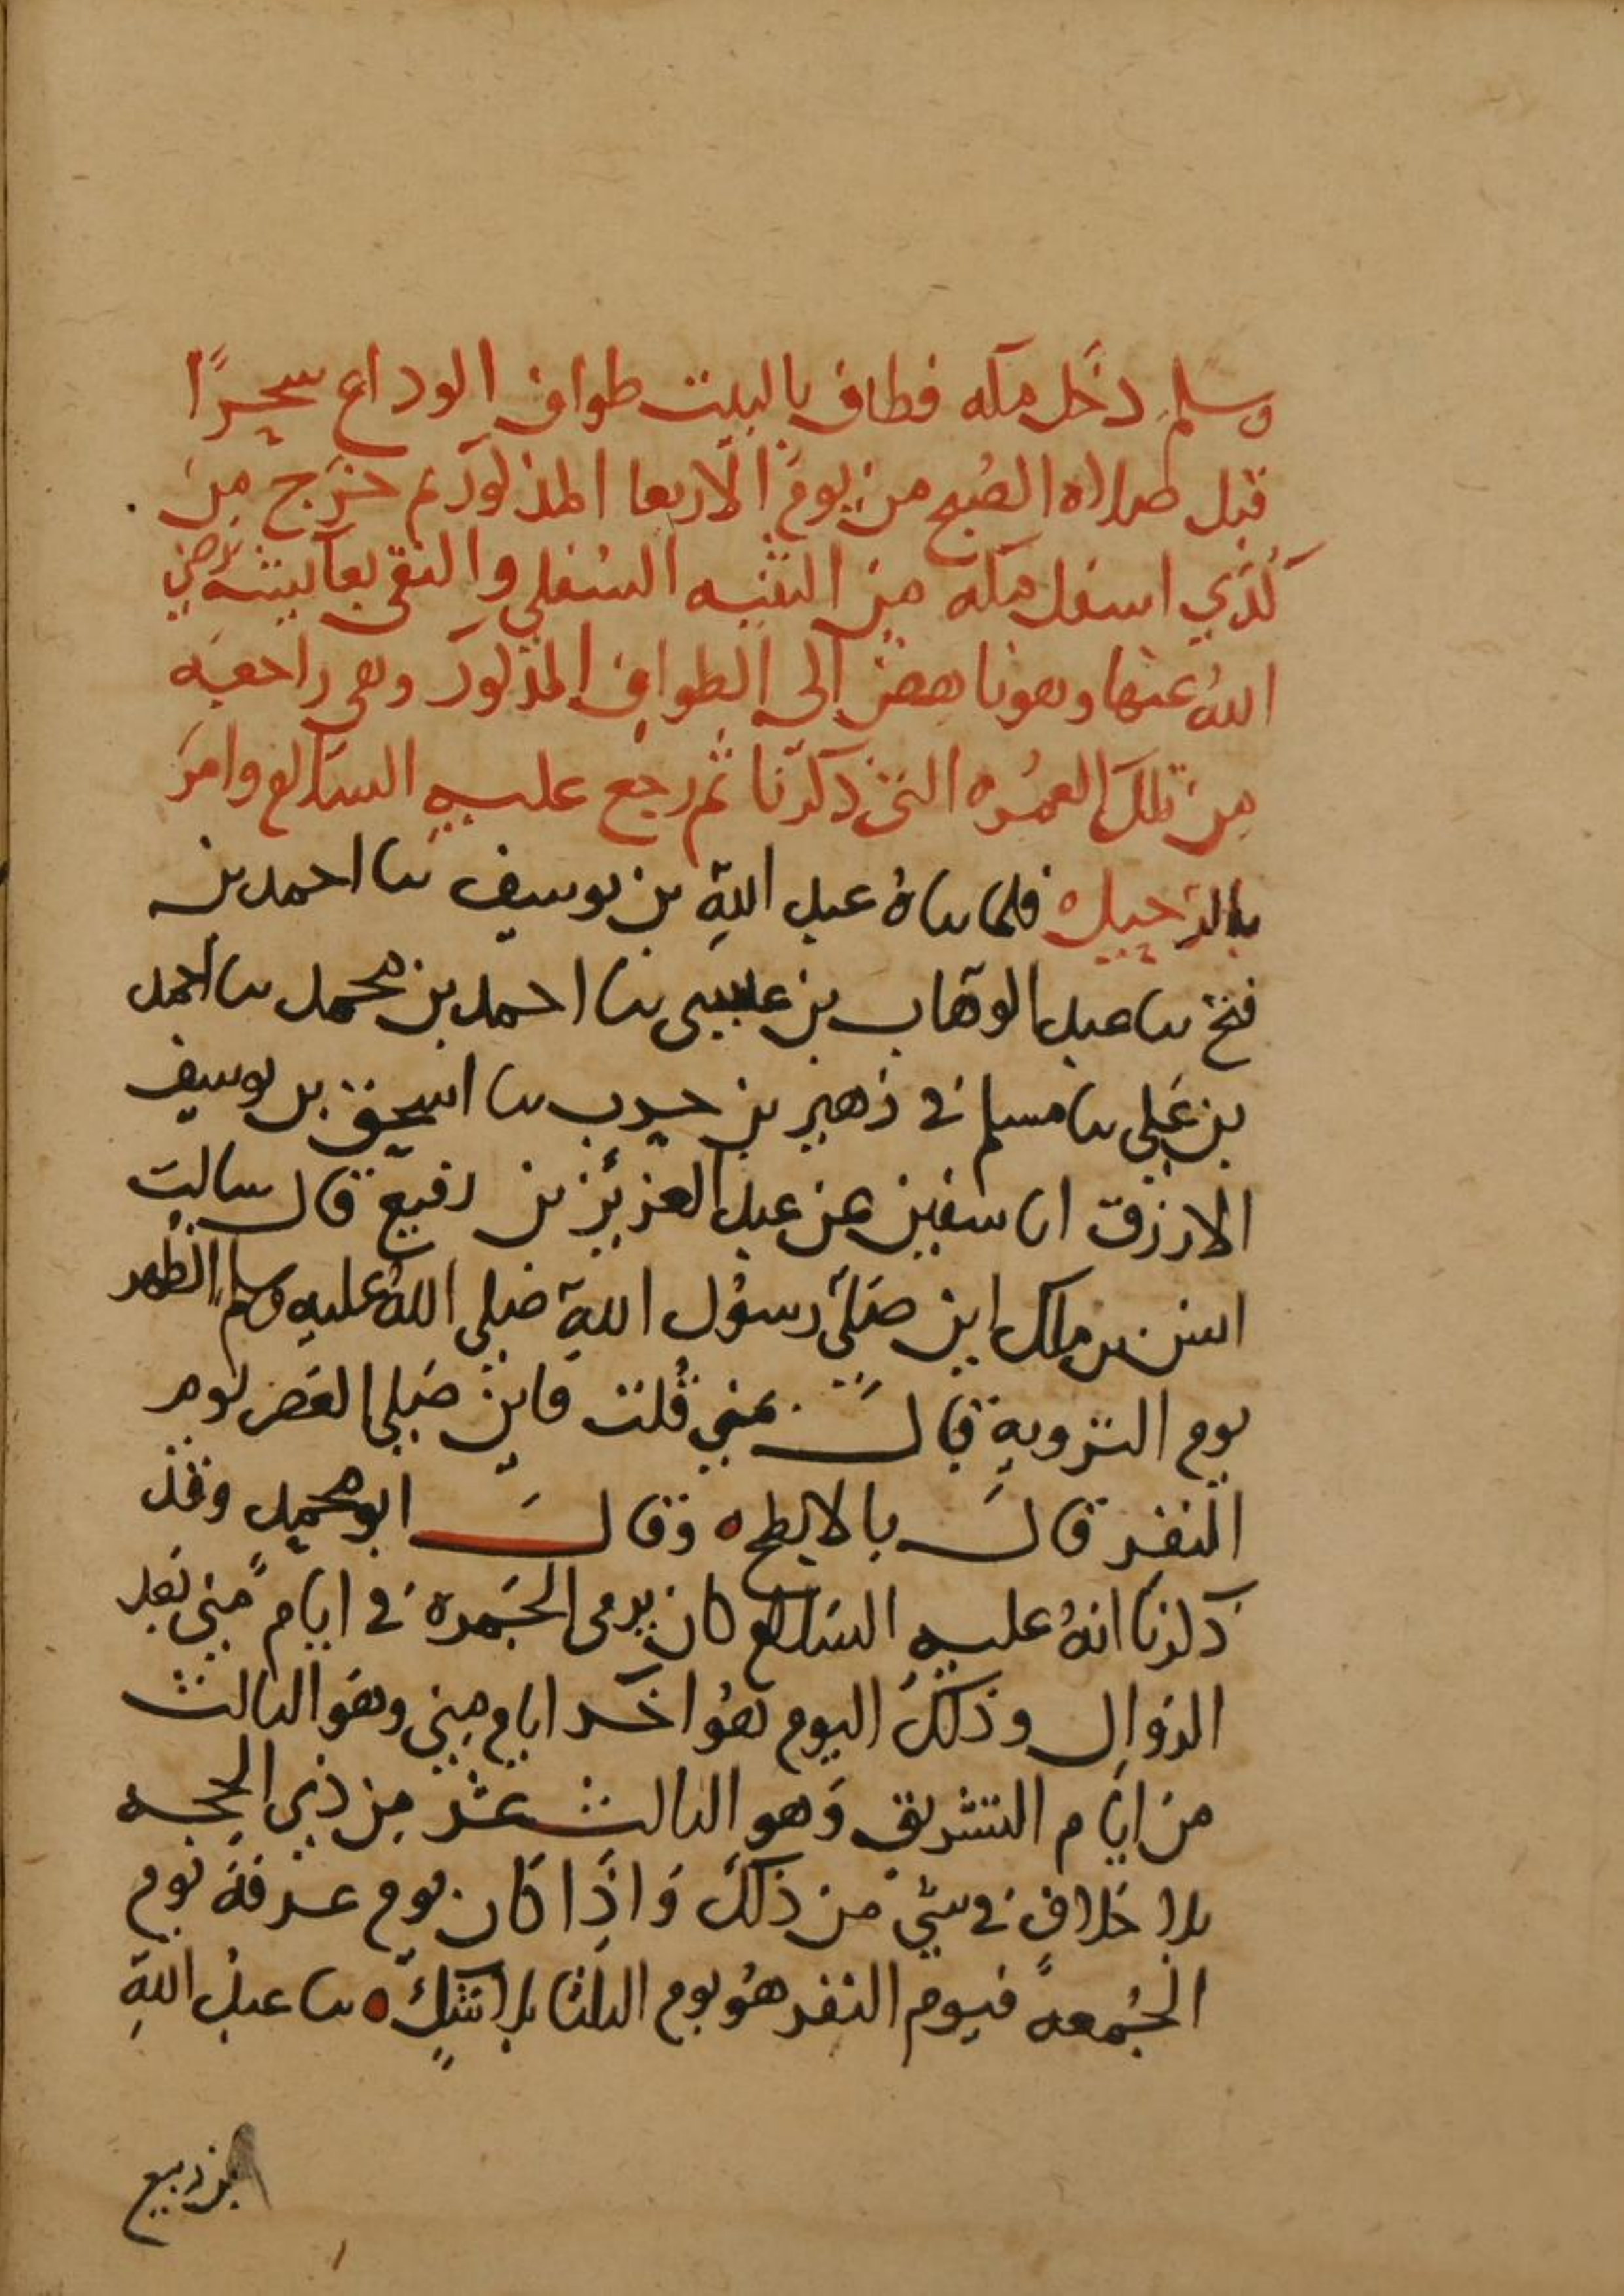 وسلم دخل مكه فطاف بالبيت طواف الوداع سحرًا
قبل صلاه الصُبح من يوم الاربعا المذكور ثم خرج من
كُدَي اسفل مكه من الثنيه السُفلي والتقي بعايشه رضي
اللهُ عنها وهو ناهض الى الطواف المذكور وهي راجعه
من تلك العمُره التي ذكرنا ثم رجع عليه السلام وامَرَ
بالرحيل ه فلما ساهُ عبد اللهِ بن يوسف نا احمد بن
فتح نا عبد الوهاب بن عيسى نا احمد بن محمد نا احمد
بن عَلي نا مسلم ني زهير بن حرب نا اسحق بن يوسف
الازرق انا سفين عن عبد العزيز بن رفيع قال سالت
انس بن ملك اين صَلّى رسوُل اللهِ صَلى اللهُ عليهِ وسلم الظهر
يوم التروية قال بمنى قُلت فاين صَلى العَصر يوم
النفر قالَ بالابطح ه وقالَ ابو محمد وقد
ذكرنا انهُ عليه السلام كان يرمى الجَمرة في ايام مِنى بَعد
الزوال وذلكَ اليوم هوُ اخر ايام مِنى وهوَ الثالث
من ايام التشريق وَهو الثالث عشر من ذي الحجه
بلا خلاف في شي من ذلكَ وَاذَا كان يوم عرفة يوم
الجُمعة فيوم النفر هوُ يوم الثلثا بلا شكٍ ه نا عبدُ اللهِ
بن ربيع